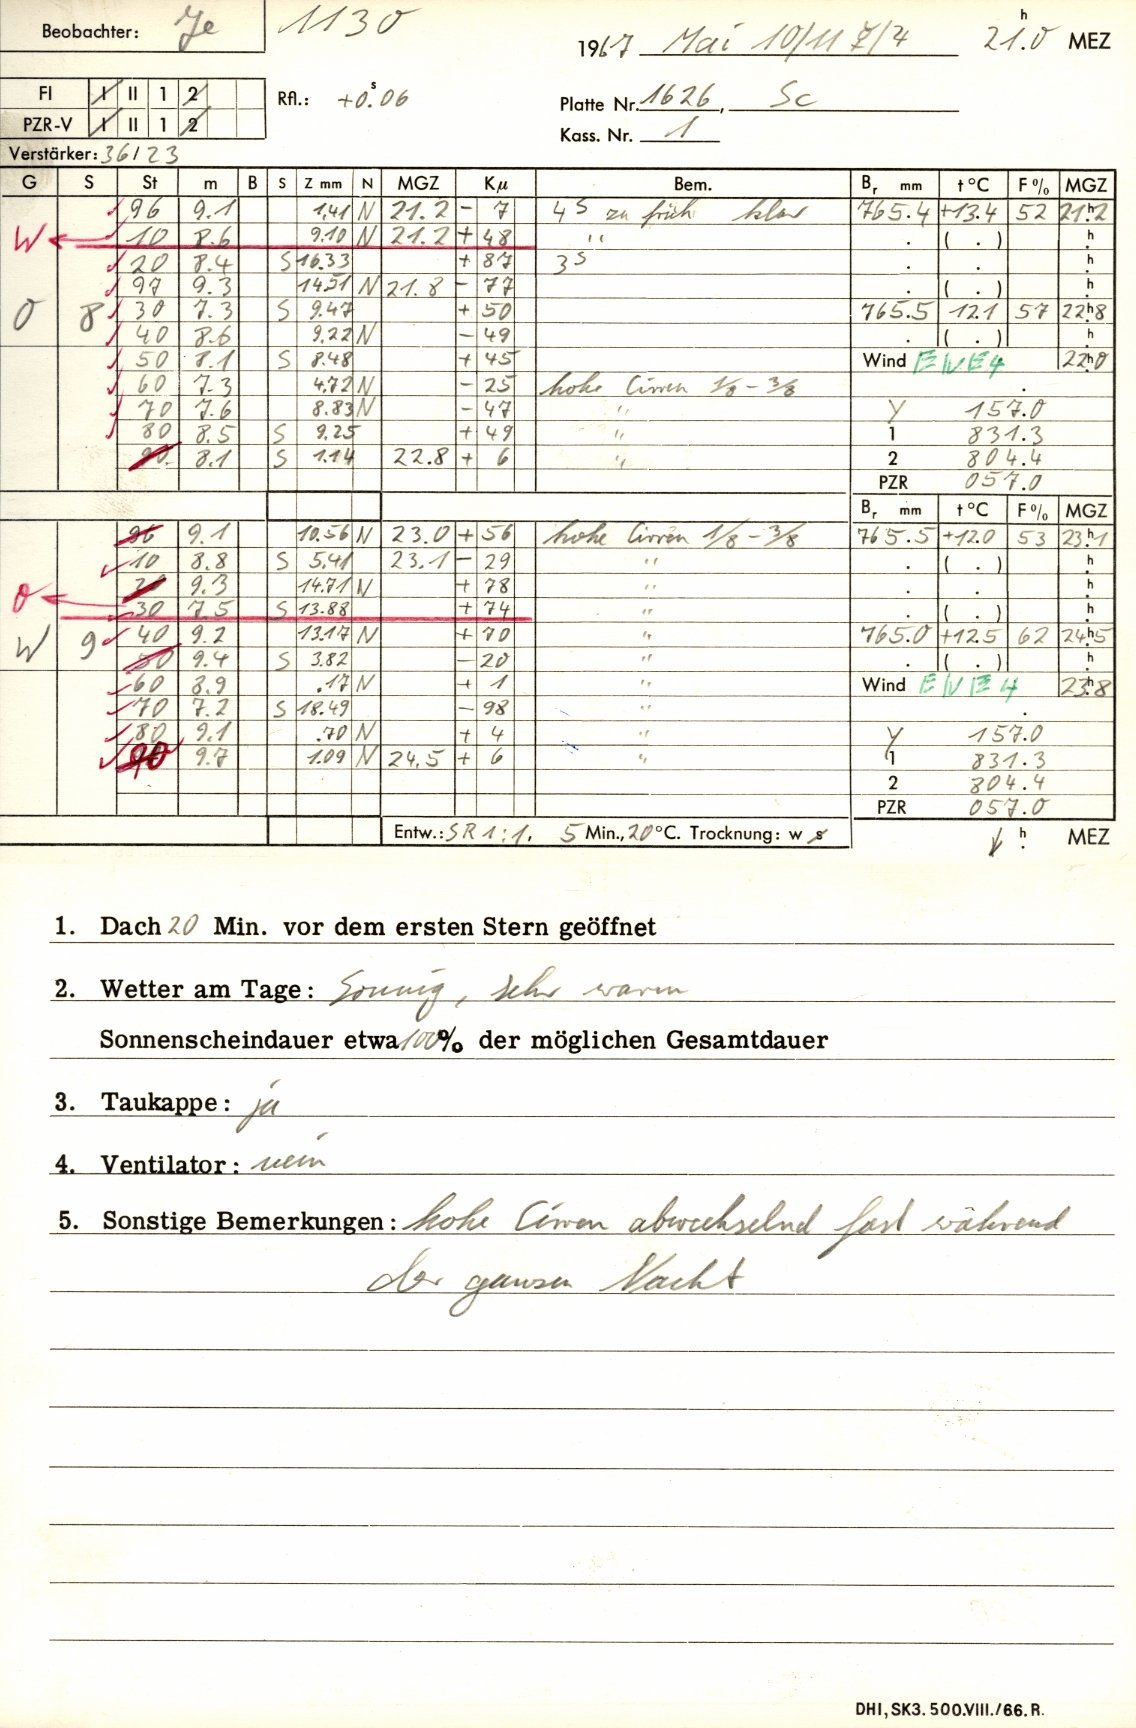 Beobachter: Je 1130
1967 Mai 10/11 21.0 h MEZ
FI I II 1 2 Rfl.: +0.06 s
Platte Nr. 1626, Sc
PZR-V I II 1 2
Kass. Nr. 1
Verstärker: 36/23
G S St m B S Z mm N MGZ Kμ Bem. Br mm t °C F% MGZ
96 9.1 1.41 N 21.2 - 7 4S zu früh klar 765.4 +13.4 52 21h2
W 10 8.6 9.10 N 21.2 + 48 " . ( . ) h
20 8.4 S 16.33 + 87 3S . .
97 9.3 14.51 N 21.8 - 77 . ( . ) h
O 8 30 7.3 S 9.47 + 50 765.5 12.1 57 22h8
40 8.6 9.22 N - 49 . ( . ) h
50 8.1 S 8.48 + 45 Wind E/VE4 22h0
60 7.3 4.72 N - 25 hohe Cirren 1/8 - 3/8
70 7.6 8.83 N - 47 " Y 157.0
80 8.5 S 9.25 + 49 " 1 831.3
90 8.1 S 1.14 22.8 + 6 " 2 804.4
PZR 057.0
Br mm t °C F% MGZ
96 9.1 10.56 N 23.0 + 56 hohe Cirren 1/8 - 3/8 765.5 +12.0 53 23h1
10 8.8 S 5.41 23.1 - 29 " . ( . ) h
20 9.3 14.71 N + 78 " . .
O 30 7.5 S 13.88 + 74 " . ( . ) h
W 9 40 9.2 13.17 N + 70 " 765.0 +12.5 62 24h5
50 9.4 S 3.82 - 20 " . ( . ) h
60 8.9 .17 N + 1 " Wind E/VE 4 23h8
70 7.2 S 18.49 - 98 "
80 9.1 .70 N + 4 " Y 157.0
90 9.7 1.09 N 24.5 + 6 " 1 831.3
2 804.4
PZR 057.0
Entw.: SR 1:1, 5 Min., 20 °C. Trocknung: w s h MEZ
1. Dach 20 Min. vor dem ersten Stern geöffnet
2. Wetter am Tage: Sonnig, sehr warm
Sonnenscheindauer etwa 100% der möglichen Gesamtdauer
3. Taukappe: ja
4. Ventilator: nein
5. Sonstige Bemerkungen: hohe Cirren abwechselnd fast während
der ganzen Nacht
DHI, SK3. 500.VIII./66. R.